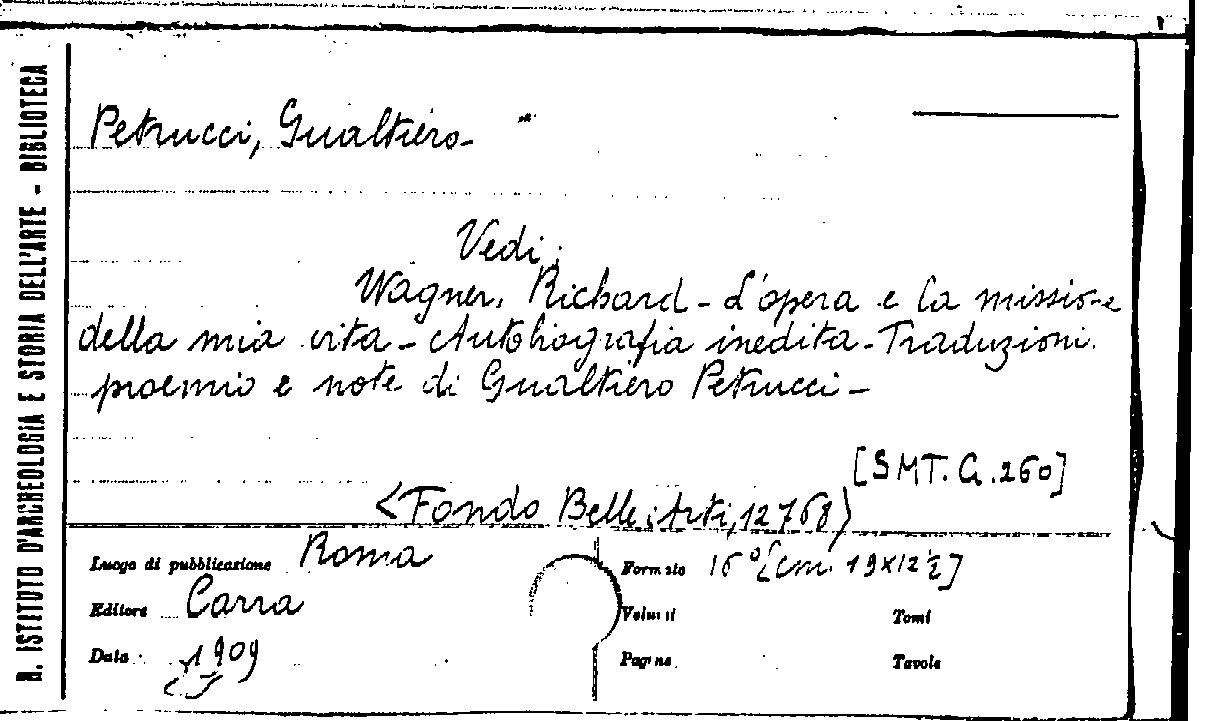 R. ISTITUTO D'ARCHEOLOGIA E STORIA DELL'ARTE - BIBLIOTECA
Petrucci, Gualtiero-
Vedi:
Wagner, Richard - L'opera e la missione
della mia vita - Autobiografia inedita - Traduzioni.
proemio e note di Gualtiero Petrucci -
[SMT. G. 260]
<Fondo Belle Arti, 12768>
Luogo di pubblicazione Roma
Formato 16° [cm. 19x12½]
Editore Carra
Volumi
Tomi
Data 1909
Pagine
Tavole